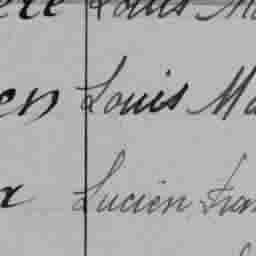 ere Louis Ma
en Louis Ma
x Lucien Fran